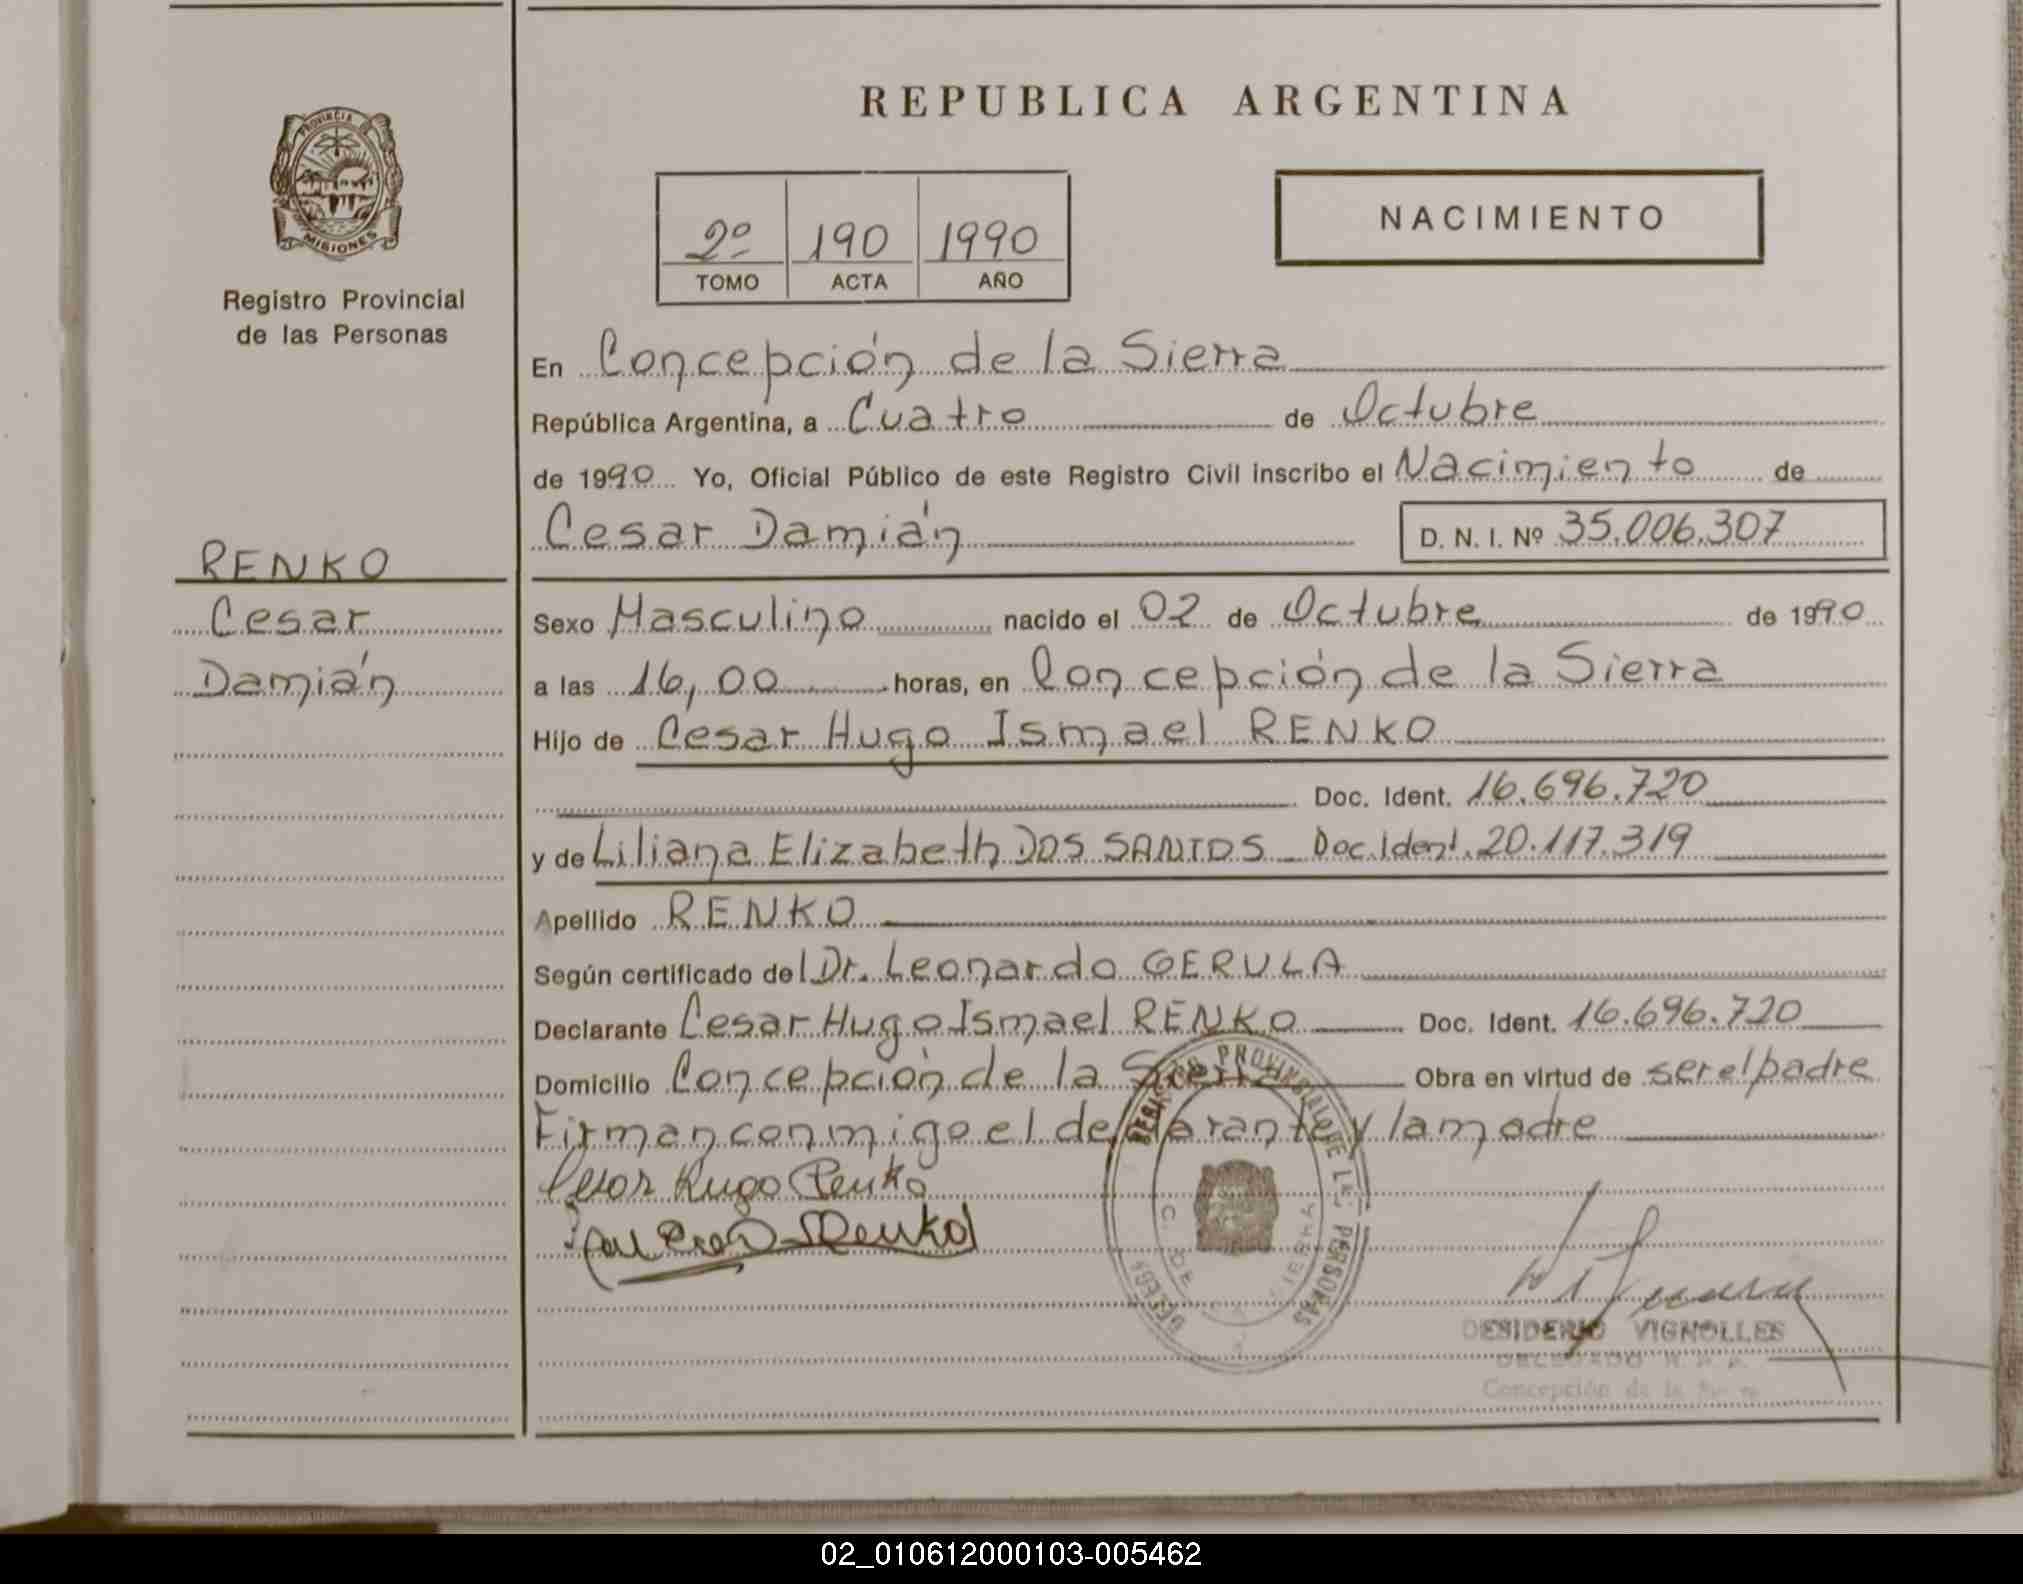 REPUBLICA ARGENTINA
PROVINCIA DE
MISIONES
Registro Provincial
de las Personas
2º 190 1990
TOMO ACTA AÑO
NACIMIENTO
En Concepción de la Sierra
República Argentina, a Cuatro de Octubre
de 1990 Yo, Oficial Público de este Registro Civil inscribo el Nacimiento de
Cesar Damián D. N. I. Nº 35.006.307
RENKO
Cesar
Damián
Sexo Masculino nacido el 02 de Octubre de 1990
a las 16,00 horas, en Concepción de la Sierra
Hijo de Cesar Hugo Ismael RENKO
Doc. Ident. 16.696.720
y de Liliana Elizabeth DOS SANTOS Doc. Ident. 20.117.319
Apellido RENKO
Según certificado del Dr. Leonardo GERULA
Declarante Cesar Hugo Ismael RENKO Doc. Ident. 16.696.720
Domicilio Concepción de la Sierra Obra en virtud de ser el padre
Firman conmigo el declarante y la madre
Cesar Hugo Renko
Renko
REGISTRO PROVINCIAL DE LAS PERSONAS
C. DE SIERRA
DESIDERIO VIGNOLLES
DELEGADO R. P. P.
Concepción de la Sierra
02_010612000103-005462